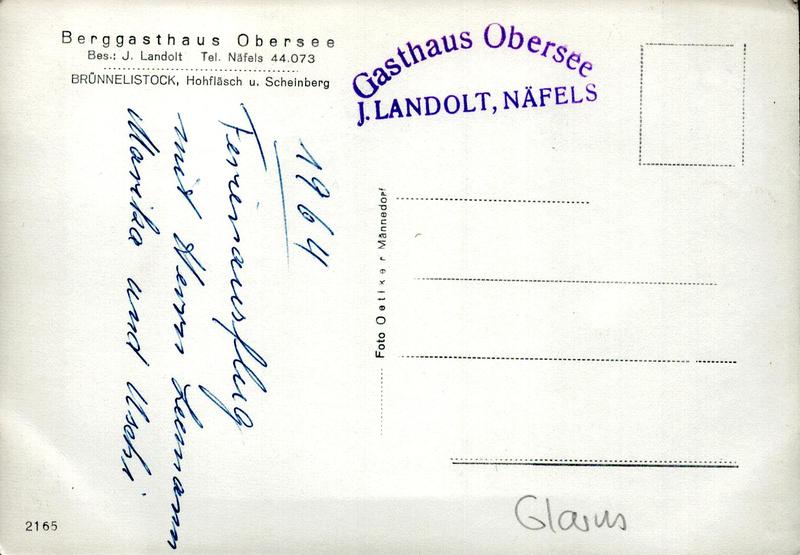 Berggasthaus Obersee
Bes.: J. Landolt Tel. Näfels 44.073
BRÜNNELISTOCK, Hohfläsch u. Scheinberg
Gasthaus Obersee
J. LANDOLT, NÄFELS
1964
Ferienausflug
mit Herrn Leemann
Marika und Uschi
Foto Oetiker Männedorf
2165
Glarus